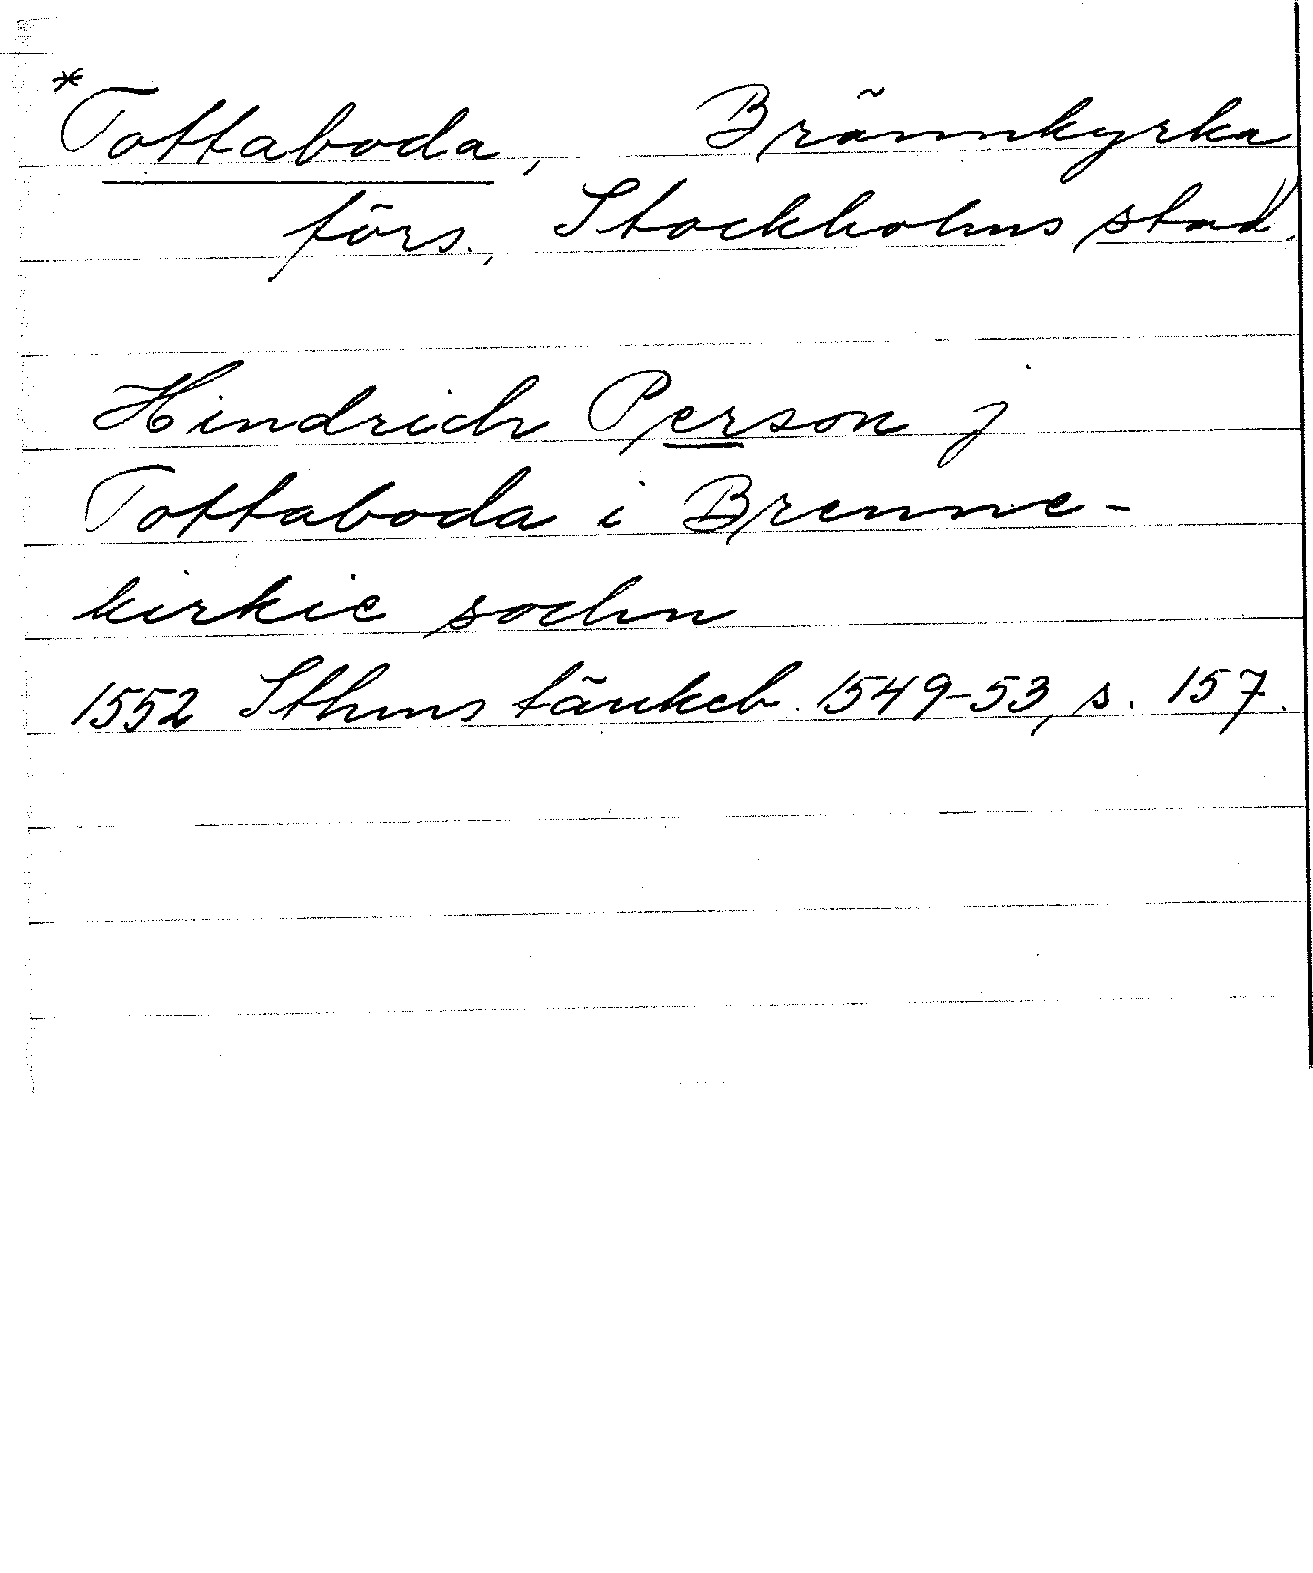 *Tottaboda, Brännkyrka
förs., Stockholms stad.
Hindrich Person j
Tottaboda i Brenne-
kirkie sochn
1552 Sthms tänkeb. 1549-53, s. 157.